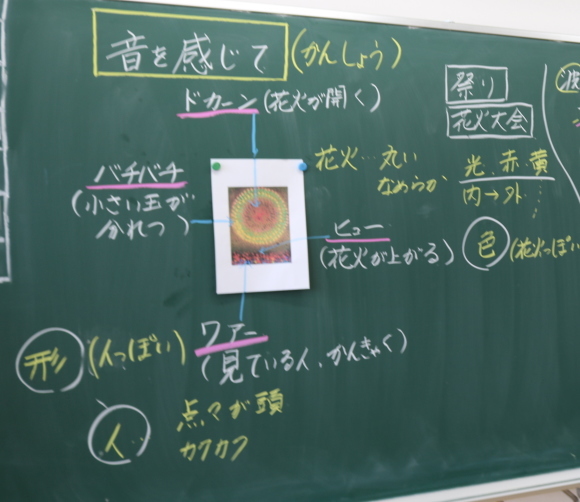 音を感じて
(かんしょう)
ドカーン(花火が開く)
祭り
花火大会
バチバチ
(小さい玉が
分れつ)
花火…丸い
なめらか
光、赤、黄
内→外
ヒュー
(花火が上がる)
色
(花火っぽい
ワァー
(見ている人、かんきゃく)
形
(人っぽい)
人
点々が頭
カクカク